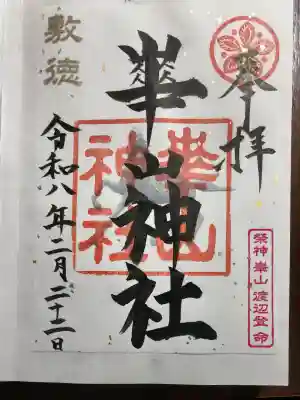 奉拝
祭神 崋山 渡辺登命
崋山神社
崋山
神社
敷徳
令和八年二月二十二日